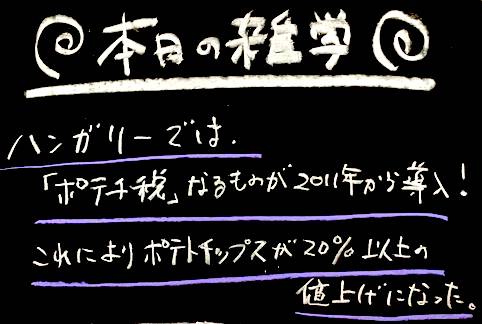 本日の雑学
ハンガリーでは、
「ポテチ税」なるものが2011年から導入!
これによりポテトチップスが20%以上の
値上げになった。